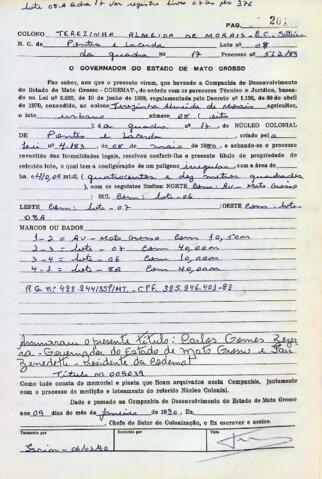 lote 08 e qda 17 ver registro livro 07 às Pls 376
PAG. 201
Colono TEREZINHA ALMEIDA DE MORAIS - E.C. Solteira
N. C. de Pontes e Lacerda Lote nº 08
da quadra nº 17 Processo nº 512/89
O GOVERNADOR DO ESTADO DE MATO GROSSO
Faz saber, aos que o presente virem, que havendo a Companhia de Desenvolvimento
do Estado de Mato Grosso - CODEMAT-, de acôrdo com os pareceres Técnico e Jurídico, basea-
do na Lei nº 2.923, de 10 de junho de 1969, regulamentada pelo Decreto nº 1.138, de 28 de abril
de 1970, concedido, ao colono Terezinha Almeida de Morais agricultor,
o lote urbano número 08 (oito
); da quadra nº 17, do NÚCLEO COLONIAL
DE Pontes e Lacerda, criado pela
Lei nº 4.183, de 08 de maio de 1980, e achando-se o processo
revestido das formalidades legais, resolveu conferir-lhe o presente título de propriedade do
referido lote, o qual tem a configuração de um polígono irregular com a área de
ha. 410,00 mt2, (quatrocentos e dez metros quadrados
), com os seguintes limites: NORTE Com: Av. - Mato Grosso
SUL Com: lote - 06
LESTE Com: lote - 07 OESTE Com: lote-
08A
MARCOS OU DADOS
1-2 = Av. - Mato Grosso com 10,50m
2-3 = lote - 07 com 40,00m
3-4 = lote - 06 com 10,00m
4-1 = lote - 8A com 40,00m
Assinaram o presente título: Carlos Gomes Bezer
ra - Governador do Estado de Mato Grosso e
Benedetti - Presidente da Codemat
Título nº 009039
Como tudo consta do memorial e planta que ficam arquivados nesta Companhia, juntamente
com o processo de medição e loteamento do referido Núcleo Colonial.
Dado e passado na Companhia de Desenvolvimento do Estado de Mato Grosso
aos 09 dias do mês de janeiro de 1990. Eu,
Chefe do Setor de Colonização, o fiz escrever e assino.
Transcrito por Conferido Visto